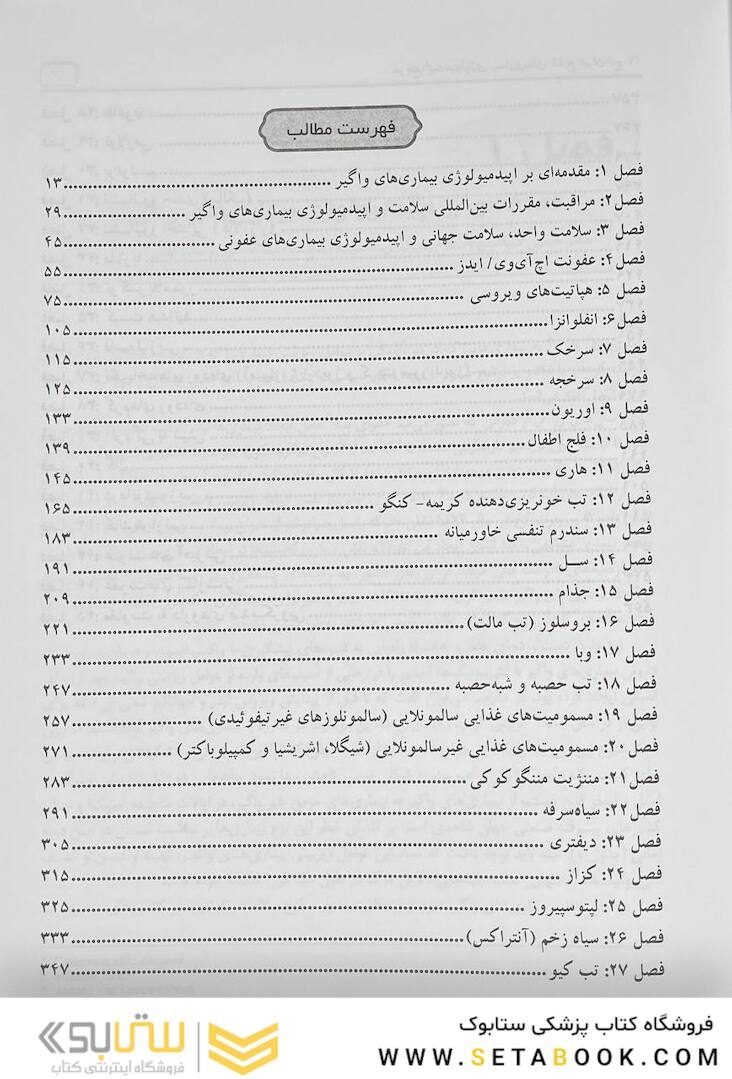 فهرست مطالب
فصل ۱: مقدمه‌ای بر اپیدمیولوژی بیماری‌های واگیر ........ ۱۳
فصل۲: مراقبت، مقررات بین‌المللی سلامت و اپیدمیولوژی بیماری‌های واگیر ........ ۲۹
فصل ۳: سلامت واحد، سلامت جهانی و اپیدمیولوژی بیماری‌های عفونی ........ ۴۵
فصل۴: عفونت اچ‌آی‌وی/ ایدز ........ ۵۵
فصل ۵: هپاتیت‌های ویروسی ........ ۷۵
فصل۶: انفلوانزا ........ ۱۰۵
فصل ۷: سرخک ........ ۱۱۵
فصل ۸: سرخجه ........ ۱۲۵
فصل ۹: اوریون ........ ۱۳۳
فصل ۱۰: فلج اطفال ........ ۱۳۹
فصل ۱۱: هاری ........ ۱۴۵
فصل ۱۲: تب خونریزی‌دهنده کریمه- کنگو ........ ۱۶۵
فصل ۱۳: سندرم تنفسی خاورمیانه ........ ۱۸۳
فصل ۱۴: ســل ........ ۱۹۱
فصل ۱۵: جذام ........ ۲۰۹
فصل ۱۶: بروسلوز (تب مالت) ........ ۲۲۱
فصل ۱۷: وبا ........ ۲۳۳
فصل ۱۸: تب حصبه و شبه‌حصبه ........ ۲۴۷
فصل ۱۹: مسمومیت‌های غذایی سالمونلایی (سالمونلوزهای غیرتیفوئیدی) ........ ۲۵۷
فصل۲۰: مسمومیت‌های غذایی غیرسالمونلایی (شیگلا، اشریشیا و کمپیلوباکتر) ........ ۲۷۱
فصل۲۱: مننژیت مننگوکوکی ........ ۲۸۳
فصل۲۲: سیاه‌سرفه ........ ۲۹۱
فصل ۲۳: دیفتری ........ ۳۰۵
فصل ۲۴: کزاز ........ ۳۱۵
فصل ۲۵: لپتوسپیروز ........ ۳۲۵
فصل ۲۶: سیاه زخم (آنتراکس) ........ ۳۳۳
فصل ۲۷: تب کیو ........ ۳۴۷
فروشگاه کتاب پزشکی ستابوک
WWW.SETABOOK.COM
ستابوک
فروشگاه اینترنتی کتاب